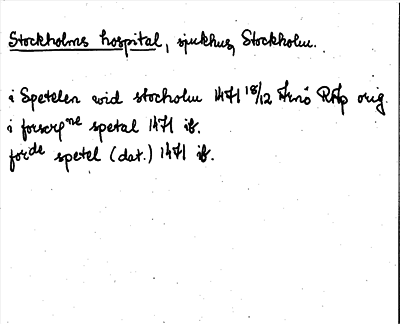 Stockholms hospital, sjukhus, Stockholm.
i Spetelen wid stocholm 1471 18/12 Årnö RAp orig.
i forscrpne spetal 1471 ib.
forde spetel (dat.) 1471 ib.